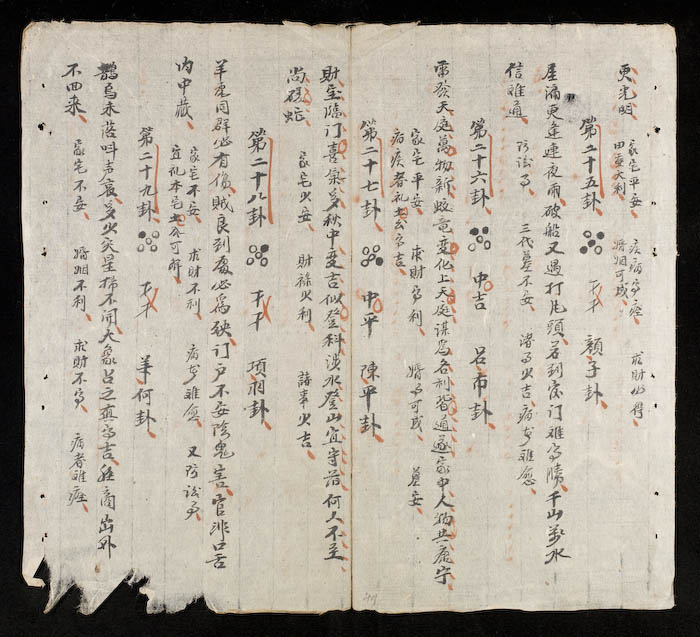 更光明
家宅平安 求財必得
田蚕大利 婚姻可成
第二十五卦 下下 顏子卦
屋漏更逢連夜雨破船又遇打頭若到官门难勝千山萬水
信难通
三代墓不安 諸事火吉 病者难愈
第二十六卦 中吉 呂布卦
雷發天庭萬物新蛟竜變化上天庭謀為名利皆通遂家中人物共康宁
家宅平安 求財多利 婚多可成 墓安
病疾者礼土公多吉
第二十七卦 中平 陳平卦
財宝臨门喜氣多秋中变吉似登科涉水登山宜守旧何人不至
尚磋蛇
家宅火安 財祿火利 諸事火吉
第二十八卦 下下 項羽卦
羊虎同群必有傷賊良到處必為殃门户不安陰鬼害官非口舌
内中藏
家宅不安 求財不利 病者难愈
宜礼本宅土公可解
第二十九卦 下下 羊何卦
鵲鳥未落叫声哀多火災星排不開大象占之並多吉經商出外
不回来
家宅不安 婚姻不利 求財不多 病者难痊